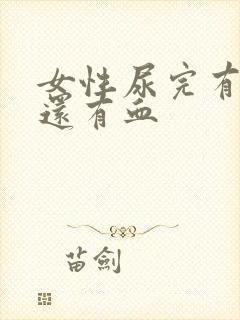 女性尿完有
還有血
苗劍